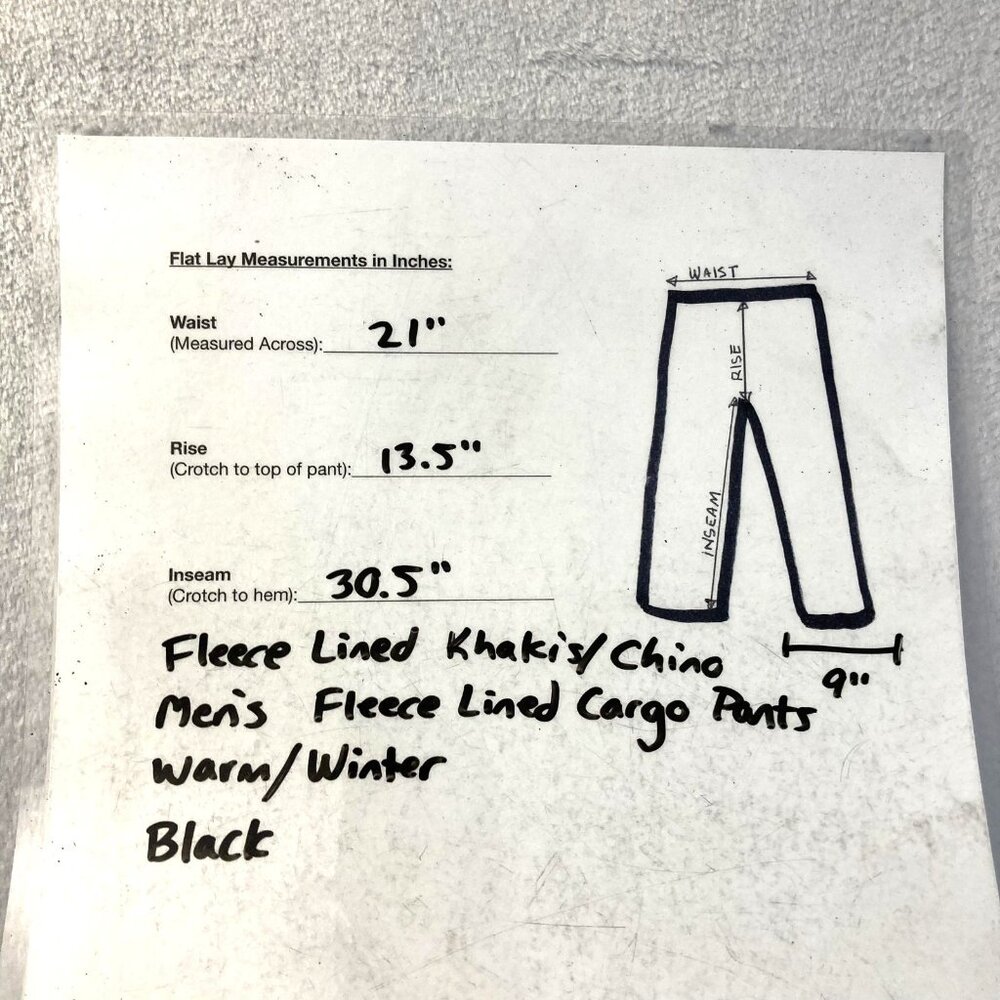 Flat Lay Measurements in Inches:
WAIST
Waist
(Measured Across): 21"
RISE
Rise
(Crotch to top of pant): 13.5"
INSEAM
Inseam
(Crotch to hem): 30.5"
Fleece Lined Khaki's/Chino
9"
Men's Fleece Lined Cargo Pants
Warm/Winter
Black